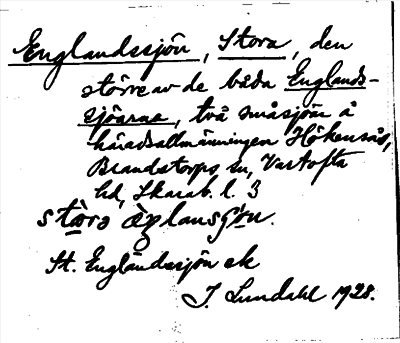 Englandssjön, Stora, den
större av de båda Englands-
sjöarna, två småsjöar å
häradsallmänningen Hökensås,
Brandstorps sn, Vartofta
hd, Skarab. l. 3
St. Englandssjön ek
J. Lundahl 1928.